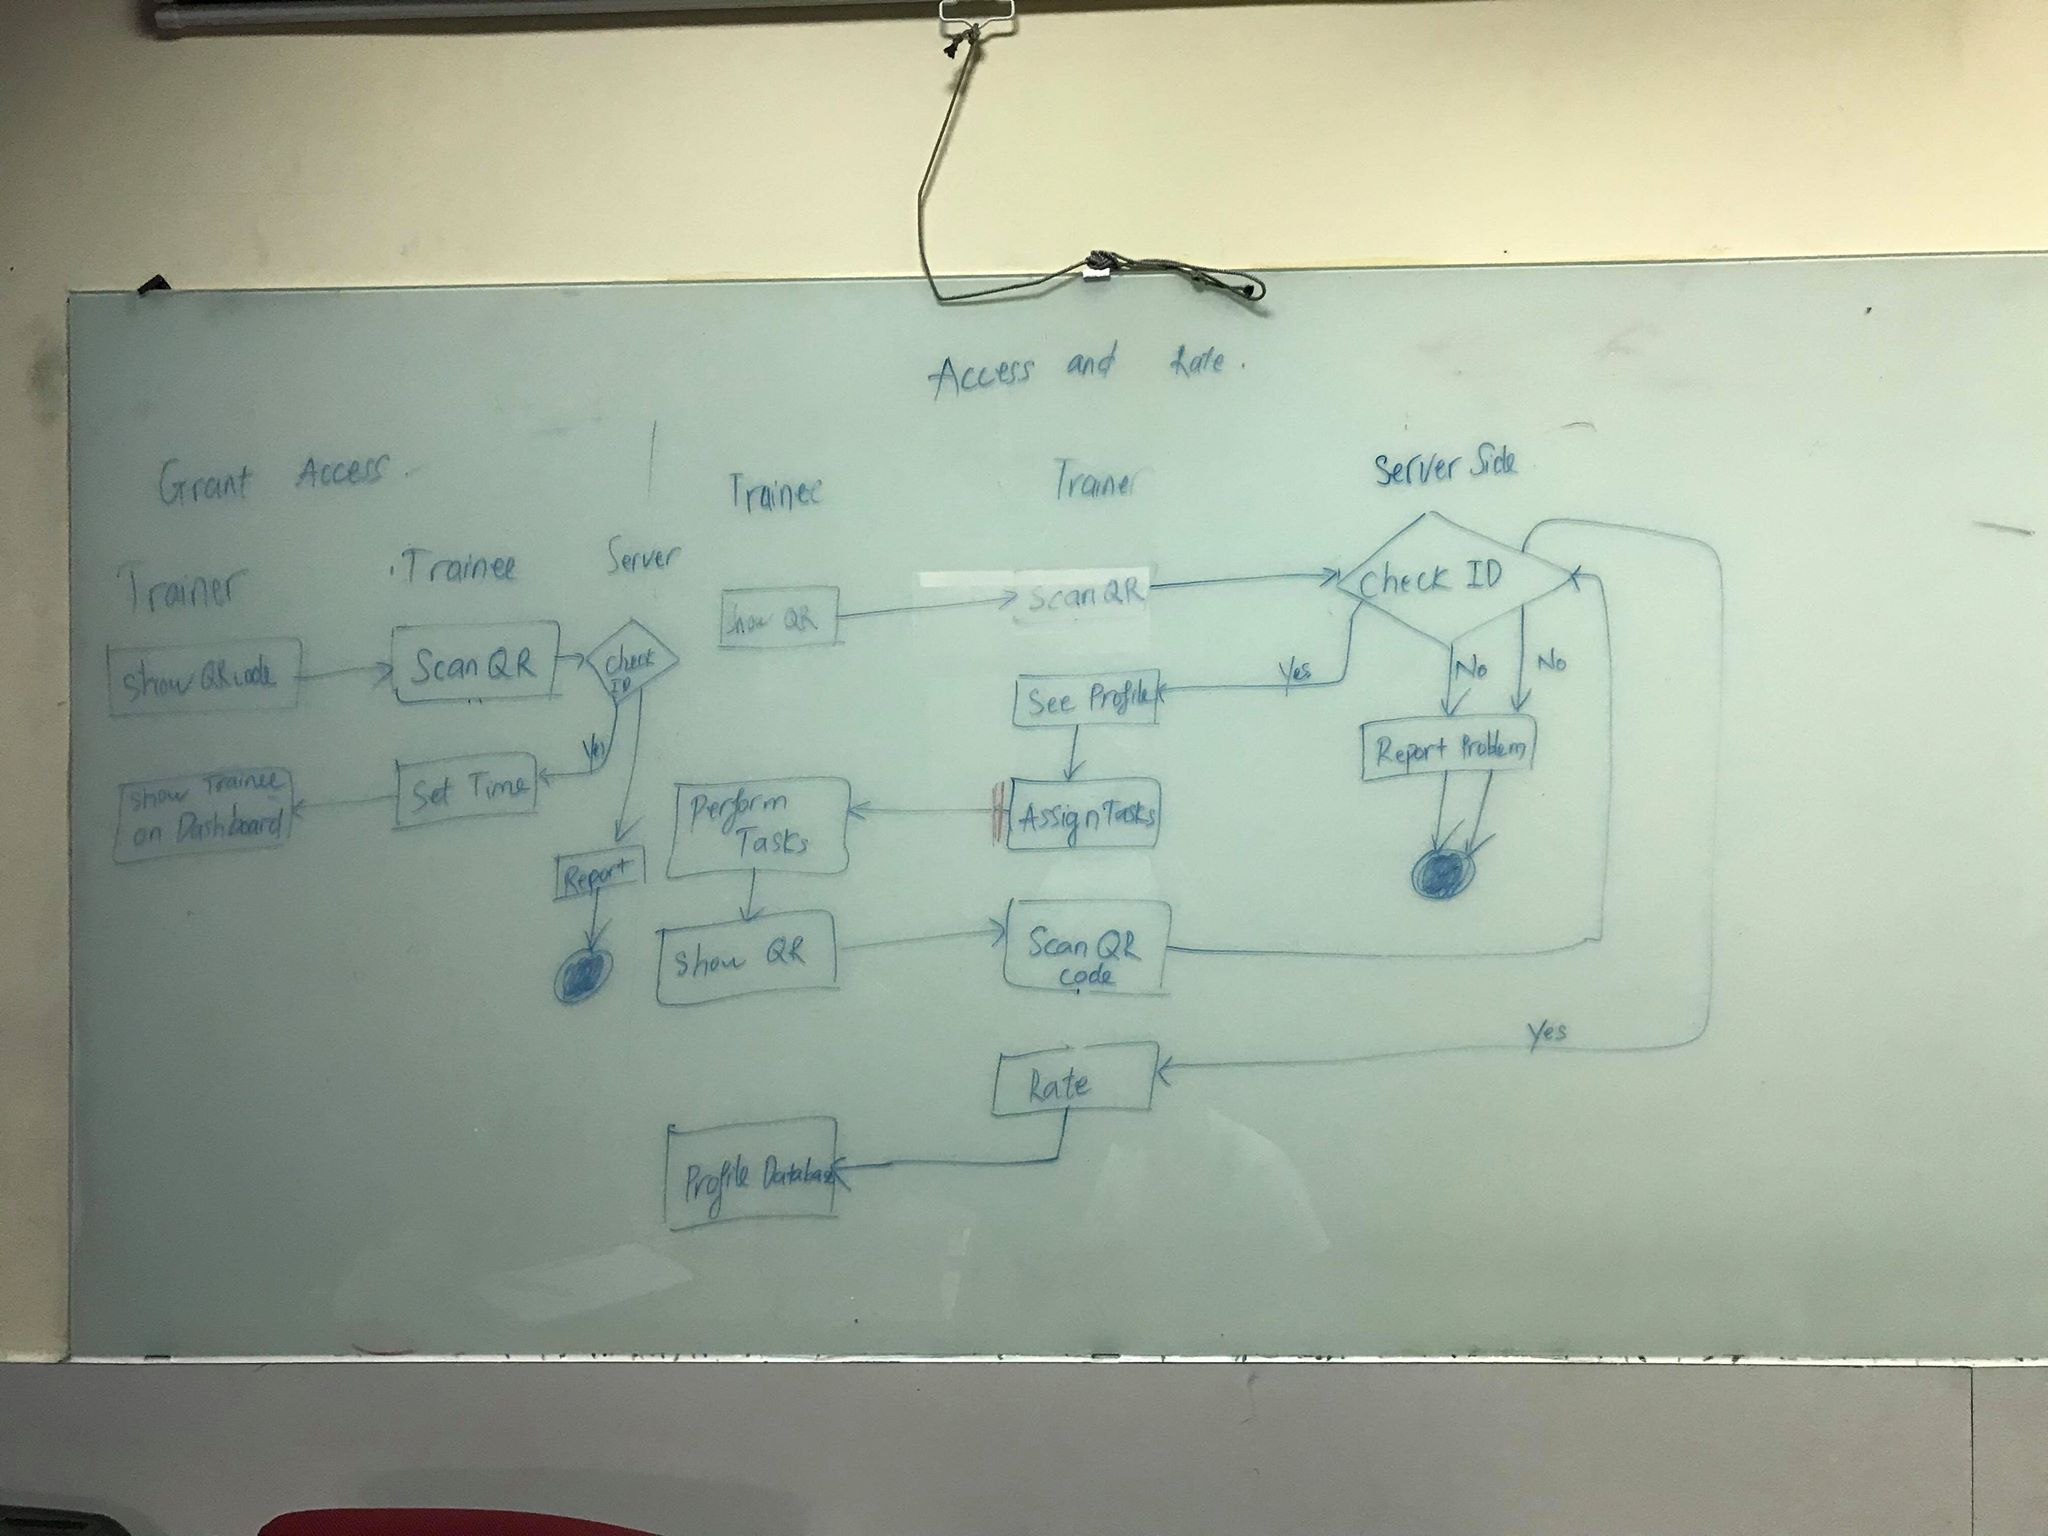 Access and Rate.
Grant Access.
Trainer
Trainee
Server
Show QR code
Scan QR
Check
ID
Yes
Set Time
Show Trainee
on Dashboard
Report
Trainee
Trainer
Server Side
Show QR
Scan QR
Check ID
Yes
No
No
See Profile
Report Problem
Perform
Tasks
Assign Tasks
Show QR
Scan QR
code
Yes
Rate
Profile Database